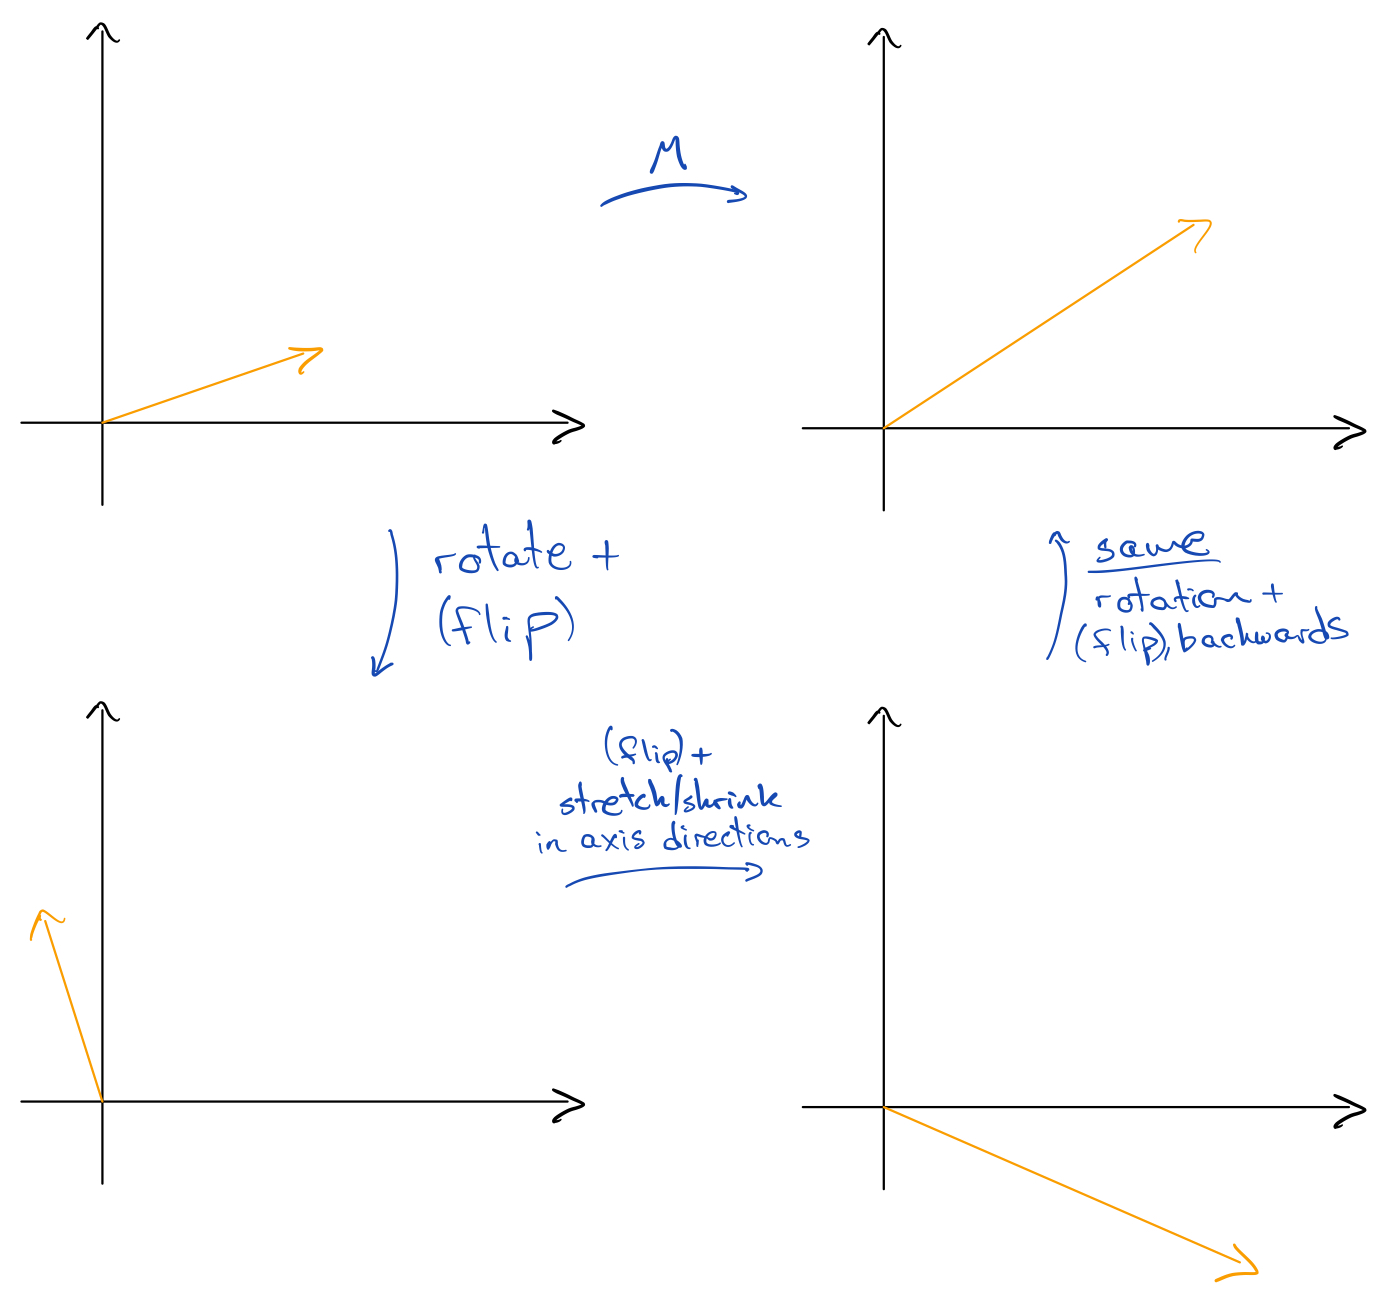 M
rotate +
(flip)
same
rotation +
(flip), backwards
(flip) +
stretch/shrink
in axis directions